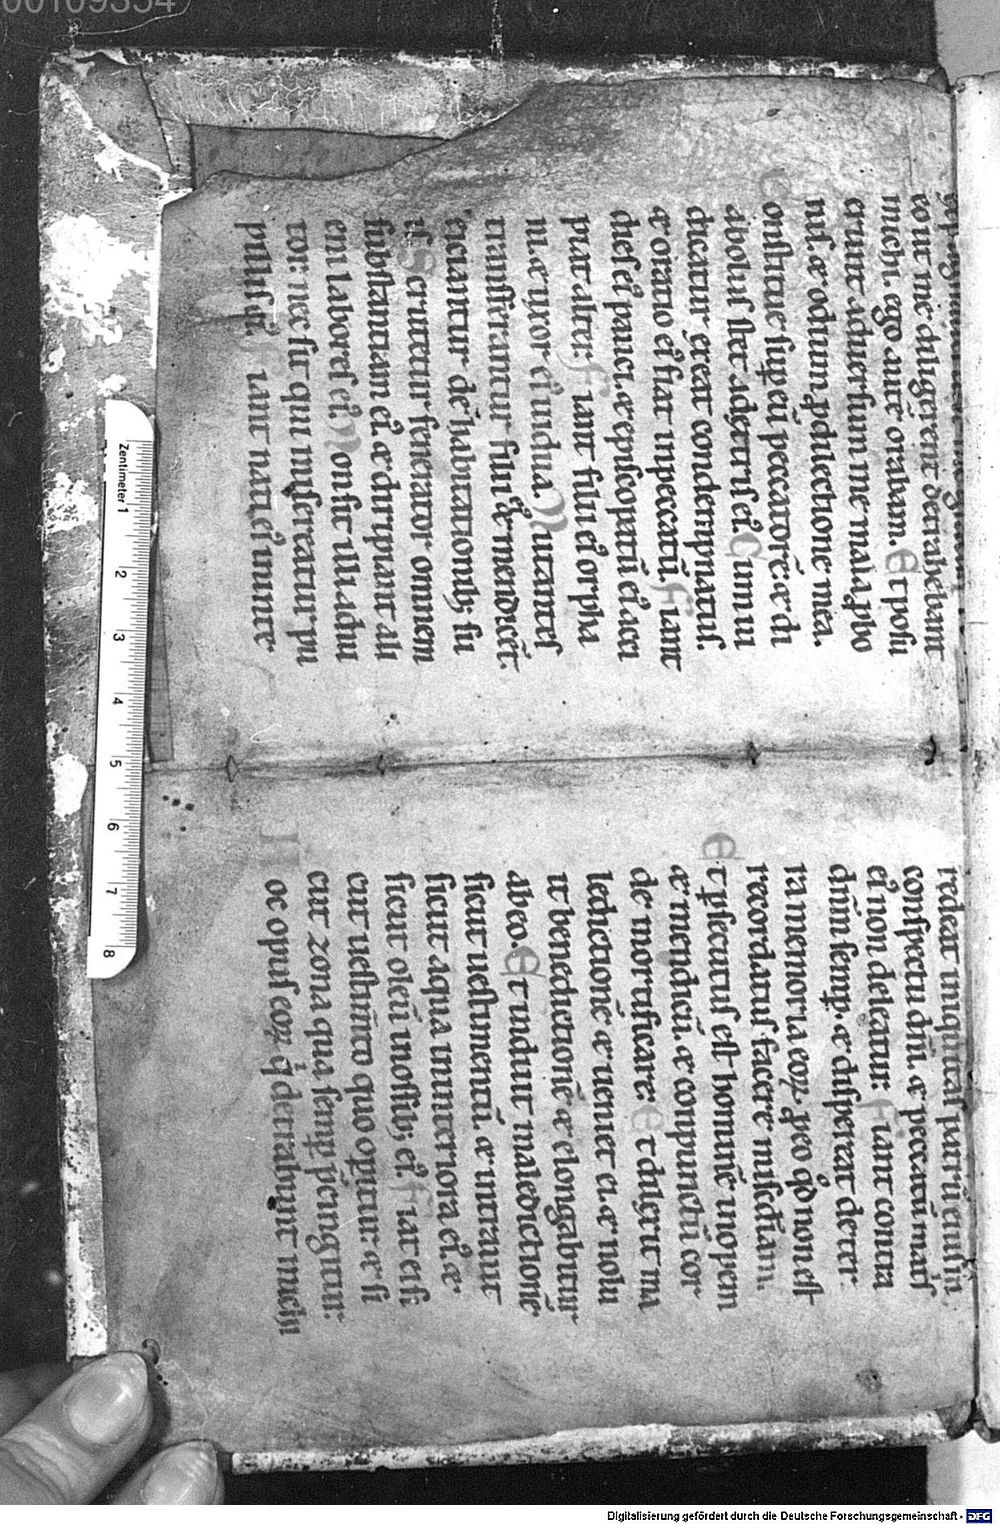 00109354
pro lo me diligerent detrahebant
michi. ego aut̄ orabam. Et posu
erunt aduersum me mala pbo
nis. ⁊ odium p dilectione mea.
Constitue sup eū peccatorē: ⁊ di
abolus stet adextris ei᷒. Cum iu
dicatur exeat condempnatus.
⁊ oratio ei᷒ fiat inpeccatū. Fiant
dies ei᷒ pauci. ⁊ episcopatū ei᷒ acci
piat alter: Fiant filii ei᷒ orpha
ni. ⁊ uxor ei᷒ uidua. Nutantes
transferantur filii ei᷒ ⁊ mendicēt.
⁊ eiciantur de habitationib; su
is. Scrutetur fenerator omnem
substantiam ei᷒. ⁊ diripiant ali
eni labores ei᷒. Non sit illi adiu
tor: nec sit qui misereatur pu
pillis ei᷒. Fiant nati ei᷒ ininte
redeat iniquitas patrū eius in
conspectu dn̄i. ⁊ peccatū mat̄s
ei᷒ non deleatur: Fiant contra
dn̄m semp. ⁊ dispereat de ter
ra memoria eoꝝ. p eo qd̄ non est
recordatus facere mise᷒diam.
Et p̱secutus est hominē inopem
⁊ mendicū. ⁊ compunctū cor
de mortificare: Et dilexit ma
ledictionē ⁊ ueniet ei. ⁊ nolu
it benedictionē ⁊ elongabitur
ab eo. Et induit maledictionē
sicut uestimentū. ⁊ intrauit
sicut aqua ininteriora ei᷒. ⁊
sicut oleū inossib; ei᷒. Fiat ei si
cut uestimto quo opitur ⁊ si
cut zona qua semp p̄cingitur:
Hoc opus eoꝝ q̇ detrahunt michi
Zentimeter 1 2 3 4 5 6 7 8
Digitalisierung gefördert durch die Deutsche Forschungsgemeinschaft - DFG